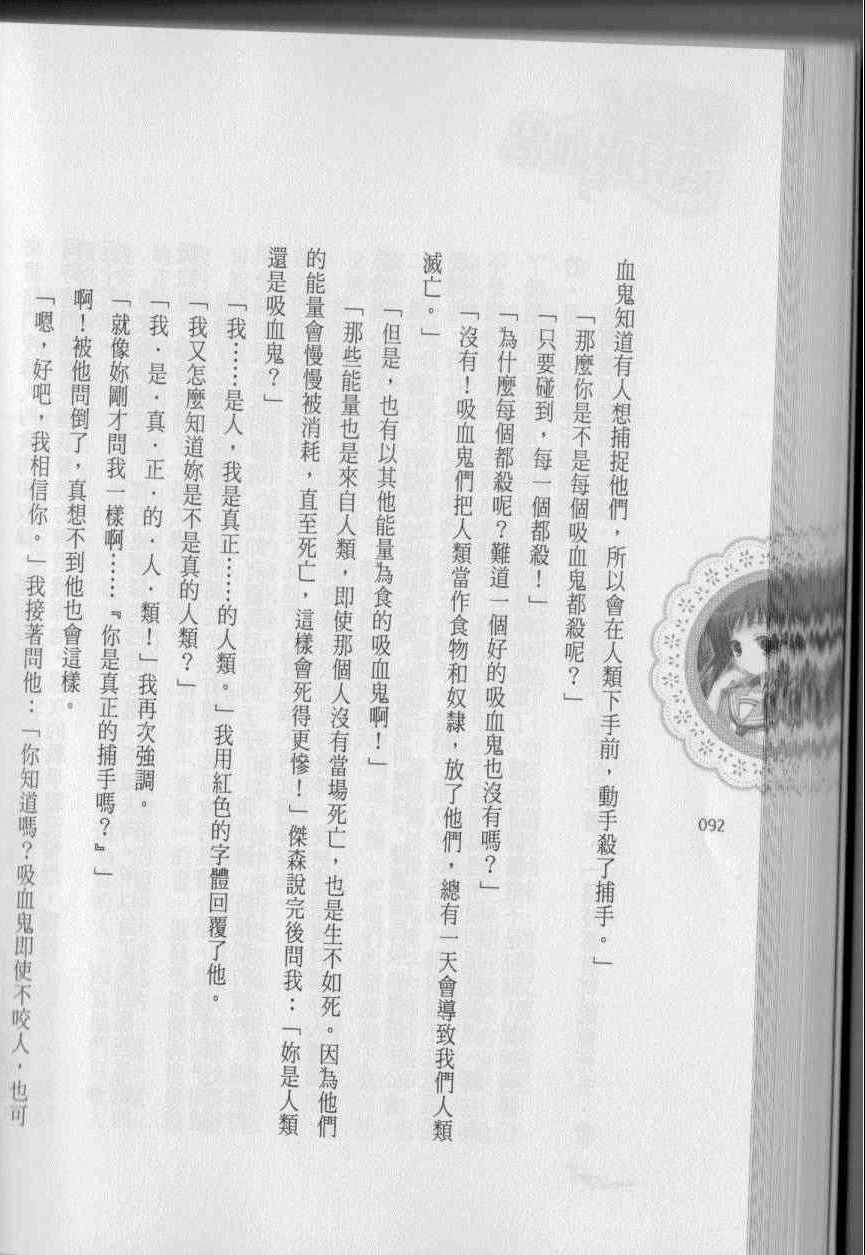 血鬼知道有人想捕捉他們，所以會在人類下手前，動手殺了捕手。」
「那麼你是不是每個吸血鬼都殺呢？」
「只要碰到，每一個都殺！」
「為什麼每個都殺呢？難道一個好的吸血鬼也沒有嗎？」
「沒有！吸血鬼們把人類當作食物和奴隸，放了他們，總有一天會導致我們人類
滅亡。」
「但是，也有以其他能量為食的吸血鬼啊！」
「那些能量也是來自人類，即使那個人沒有當場死亡，也是生不如死。因為他們
的能量會慢慢被消耗，直至死亡，這樣會死得更慘！」傑森說完後問我：「妳是人類
還是吸血鬼？」
「我……是人，我是真正……的人類。」我用紅色的字體回覆了他。
「我又怎麼知道妳是不是真的人類？」
「我．是．真．正．的．人．類！」我再次強調。
「就像妳剛才問我一樣啊……『你是真正的捕手嗎？』」
啊！被他問倒了，真想不到他也會這樣。
「嗯，好吧，我相信你。」我接著問他：「你知道嗎？吸血鬼即使不咬人，也可
092